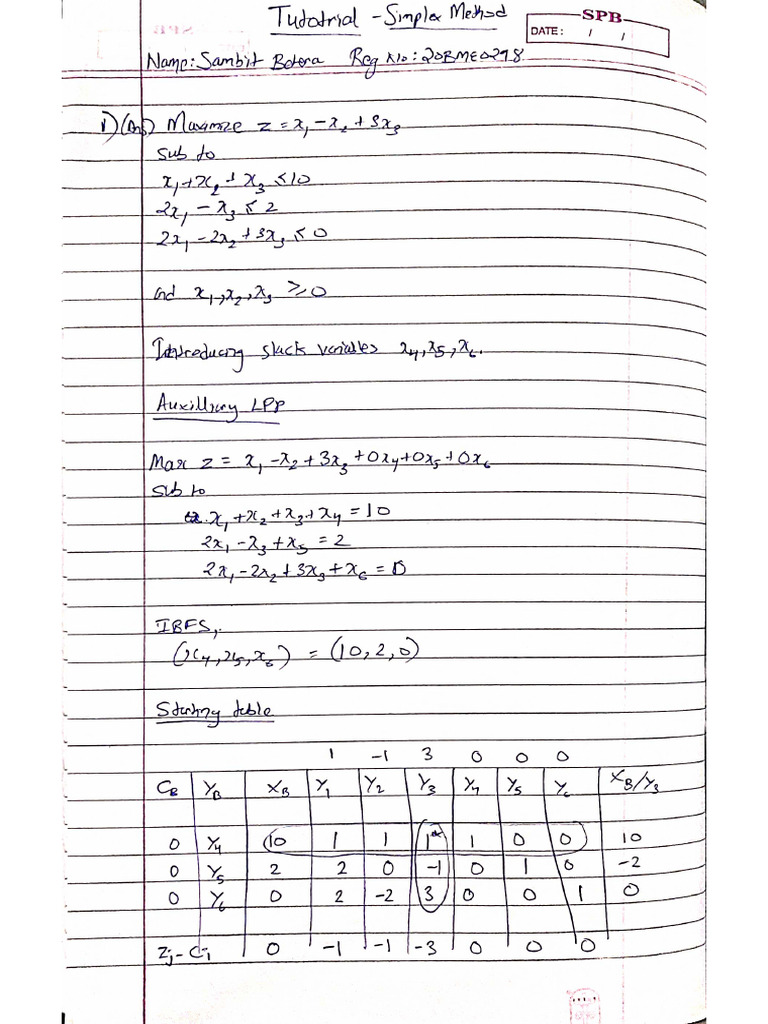 Tutotrial - Simplex Method
SPB
DATE: / /
Name: Sambit Botera Reg No: 20BME0298
1)(Ans) Maximize z = x₁ - x₂ + 3x₃
sub to
x₁ + x₂ + x₃ ≤ 10
2x₁ - x₃ ≤ 2
2x₁ - 2x₂ + 3x₃ ≤ 0
and x₁, x₂, x₃ ≥ 0
Introducing slack variables x₄, x₅, x₆.
Auxillary LPP
Max z = x₁ - x₂ + 3x₃ + 0x₄ + 0x₅ + 0x₆
sub to
x₁ + x₂ + x₃ + x₄ = 10
2x₁ - x₃ + x₅ = 2
2x₁ - 2x₂ + 3x₃ + x₆ = 0
IBFS,
(x₄, x₅, x₆) = (10, 2, 0)
Starting table
1 -1 3 0 0 0
C_B Y_B X_B Y₁ Y₂ Y₃ Y₄ Y₅ Y₆ X_B/Y₃
0 Y₄ 10 1 1 1* 1 0 0 10
0 Y₅ 2 2 0 -1 0 1 0 -2
0 Y₆ 0 2 -2 3 0 0 1 0
Zj - Cj 0 -1 -1 -3 0 0 0